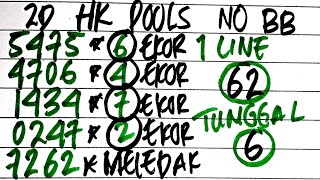 2D HK POOLS NO BB
5475 * 6 EKOR 1 LINE
4706 * 4 EKOR 62
1434 * 7 EKOR TUNGGAL
0247 * 2 EKOR 6
7262 * MELEDAK